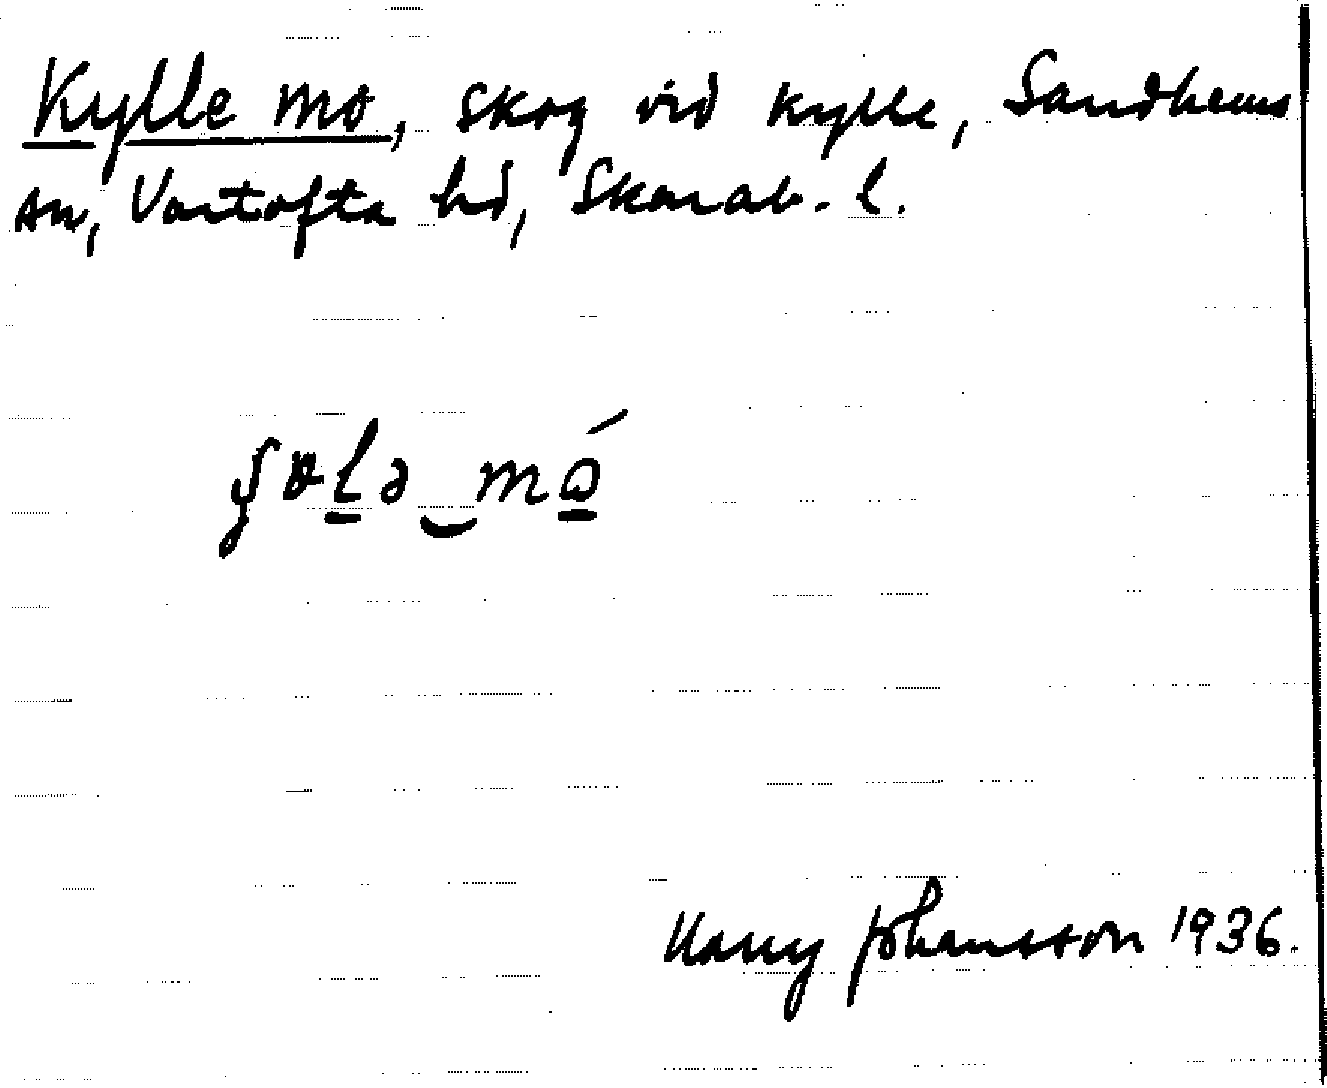 Kylle mo, skog vid Kylle, Sandhems
sn, Vartofta hd, Skarab. l.
Harry Johansson 1936.